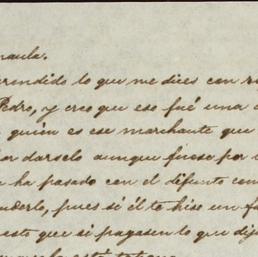 maula.
rendido lo que me dices con r
Pedro, y creo que eso fué una
quien es ese marchante que
darselo aunque fuese por
ha pasado con el difunto com
uderlo, pues si él te hise un fa
esto que si pagasen lo que dij